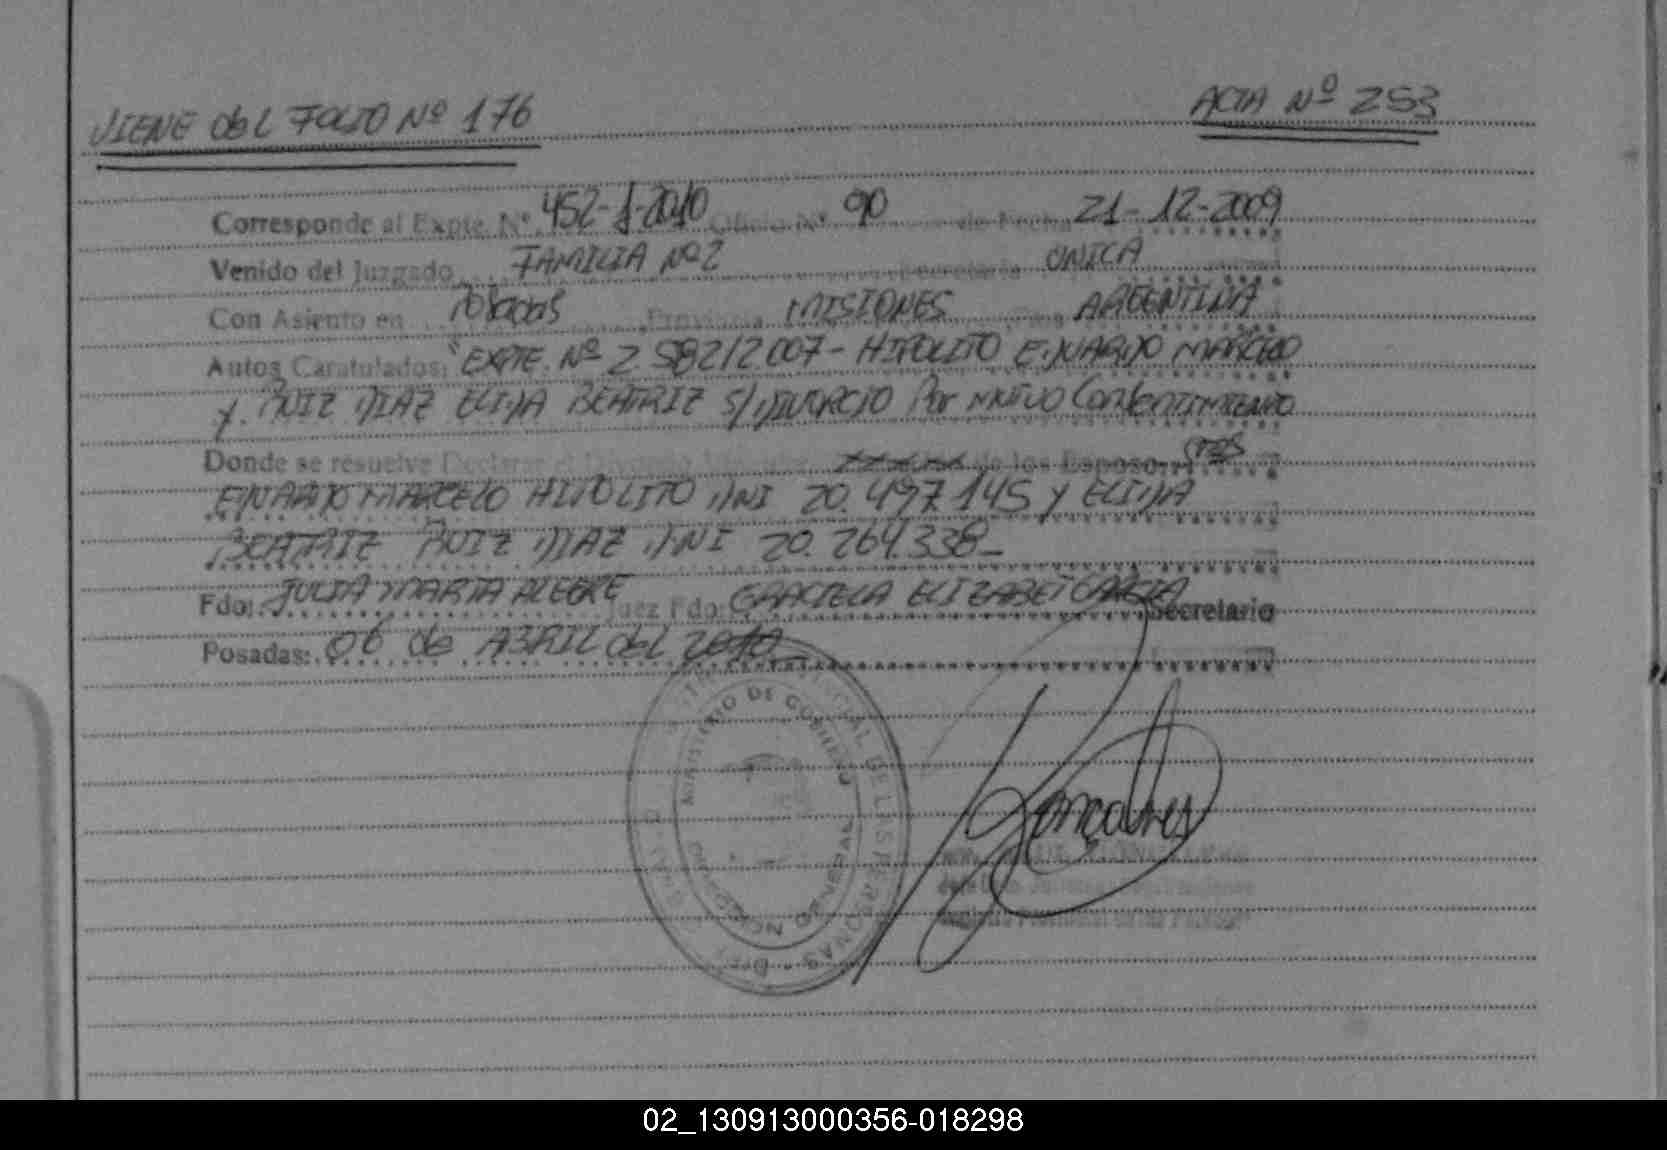 VIENE del FOLIO Nº 176
ACTA Nº 253
Corresponde al Expte. Nº 452-J-2010 Oficio Nº 90 de Fecha 21-12-2009
Venido del Juzgado FAMILIA Nº 2 Secretaria UNICA
Con Asiento en Posadas Provincia MISIONES ARGENTINA
Autos Caratulados: "EXPTE. Nº 2.582/2.007- HIPOLITO EDUARDO MARCELO
Y. RUIZ DIAZ ELIDA BEATRIZ S/DIVORCIO Por MUTUO Consentimiento
Donde se resuelve Declarar el Divorcio de los Esposo
EDUARDO MARCELO HIPOLITO DNI 20.497.145 Y ELIDA
BEATRIZ RUIZ DIAZ DNI 20.264.338-
Fdo: JULIA MARTA ALEGRE Juez Fdo: GRACIELA ELIZABET GARCIA Secretario
Posadas: 06 de ABRIL del 2010
MINISTERIO DE GOBIERNO
DE LAS PERSONAS
02_130913000356-018298